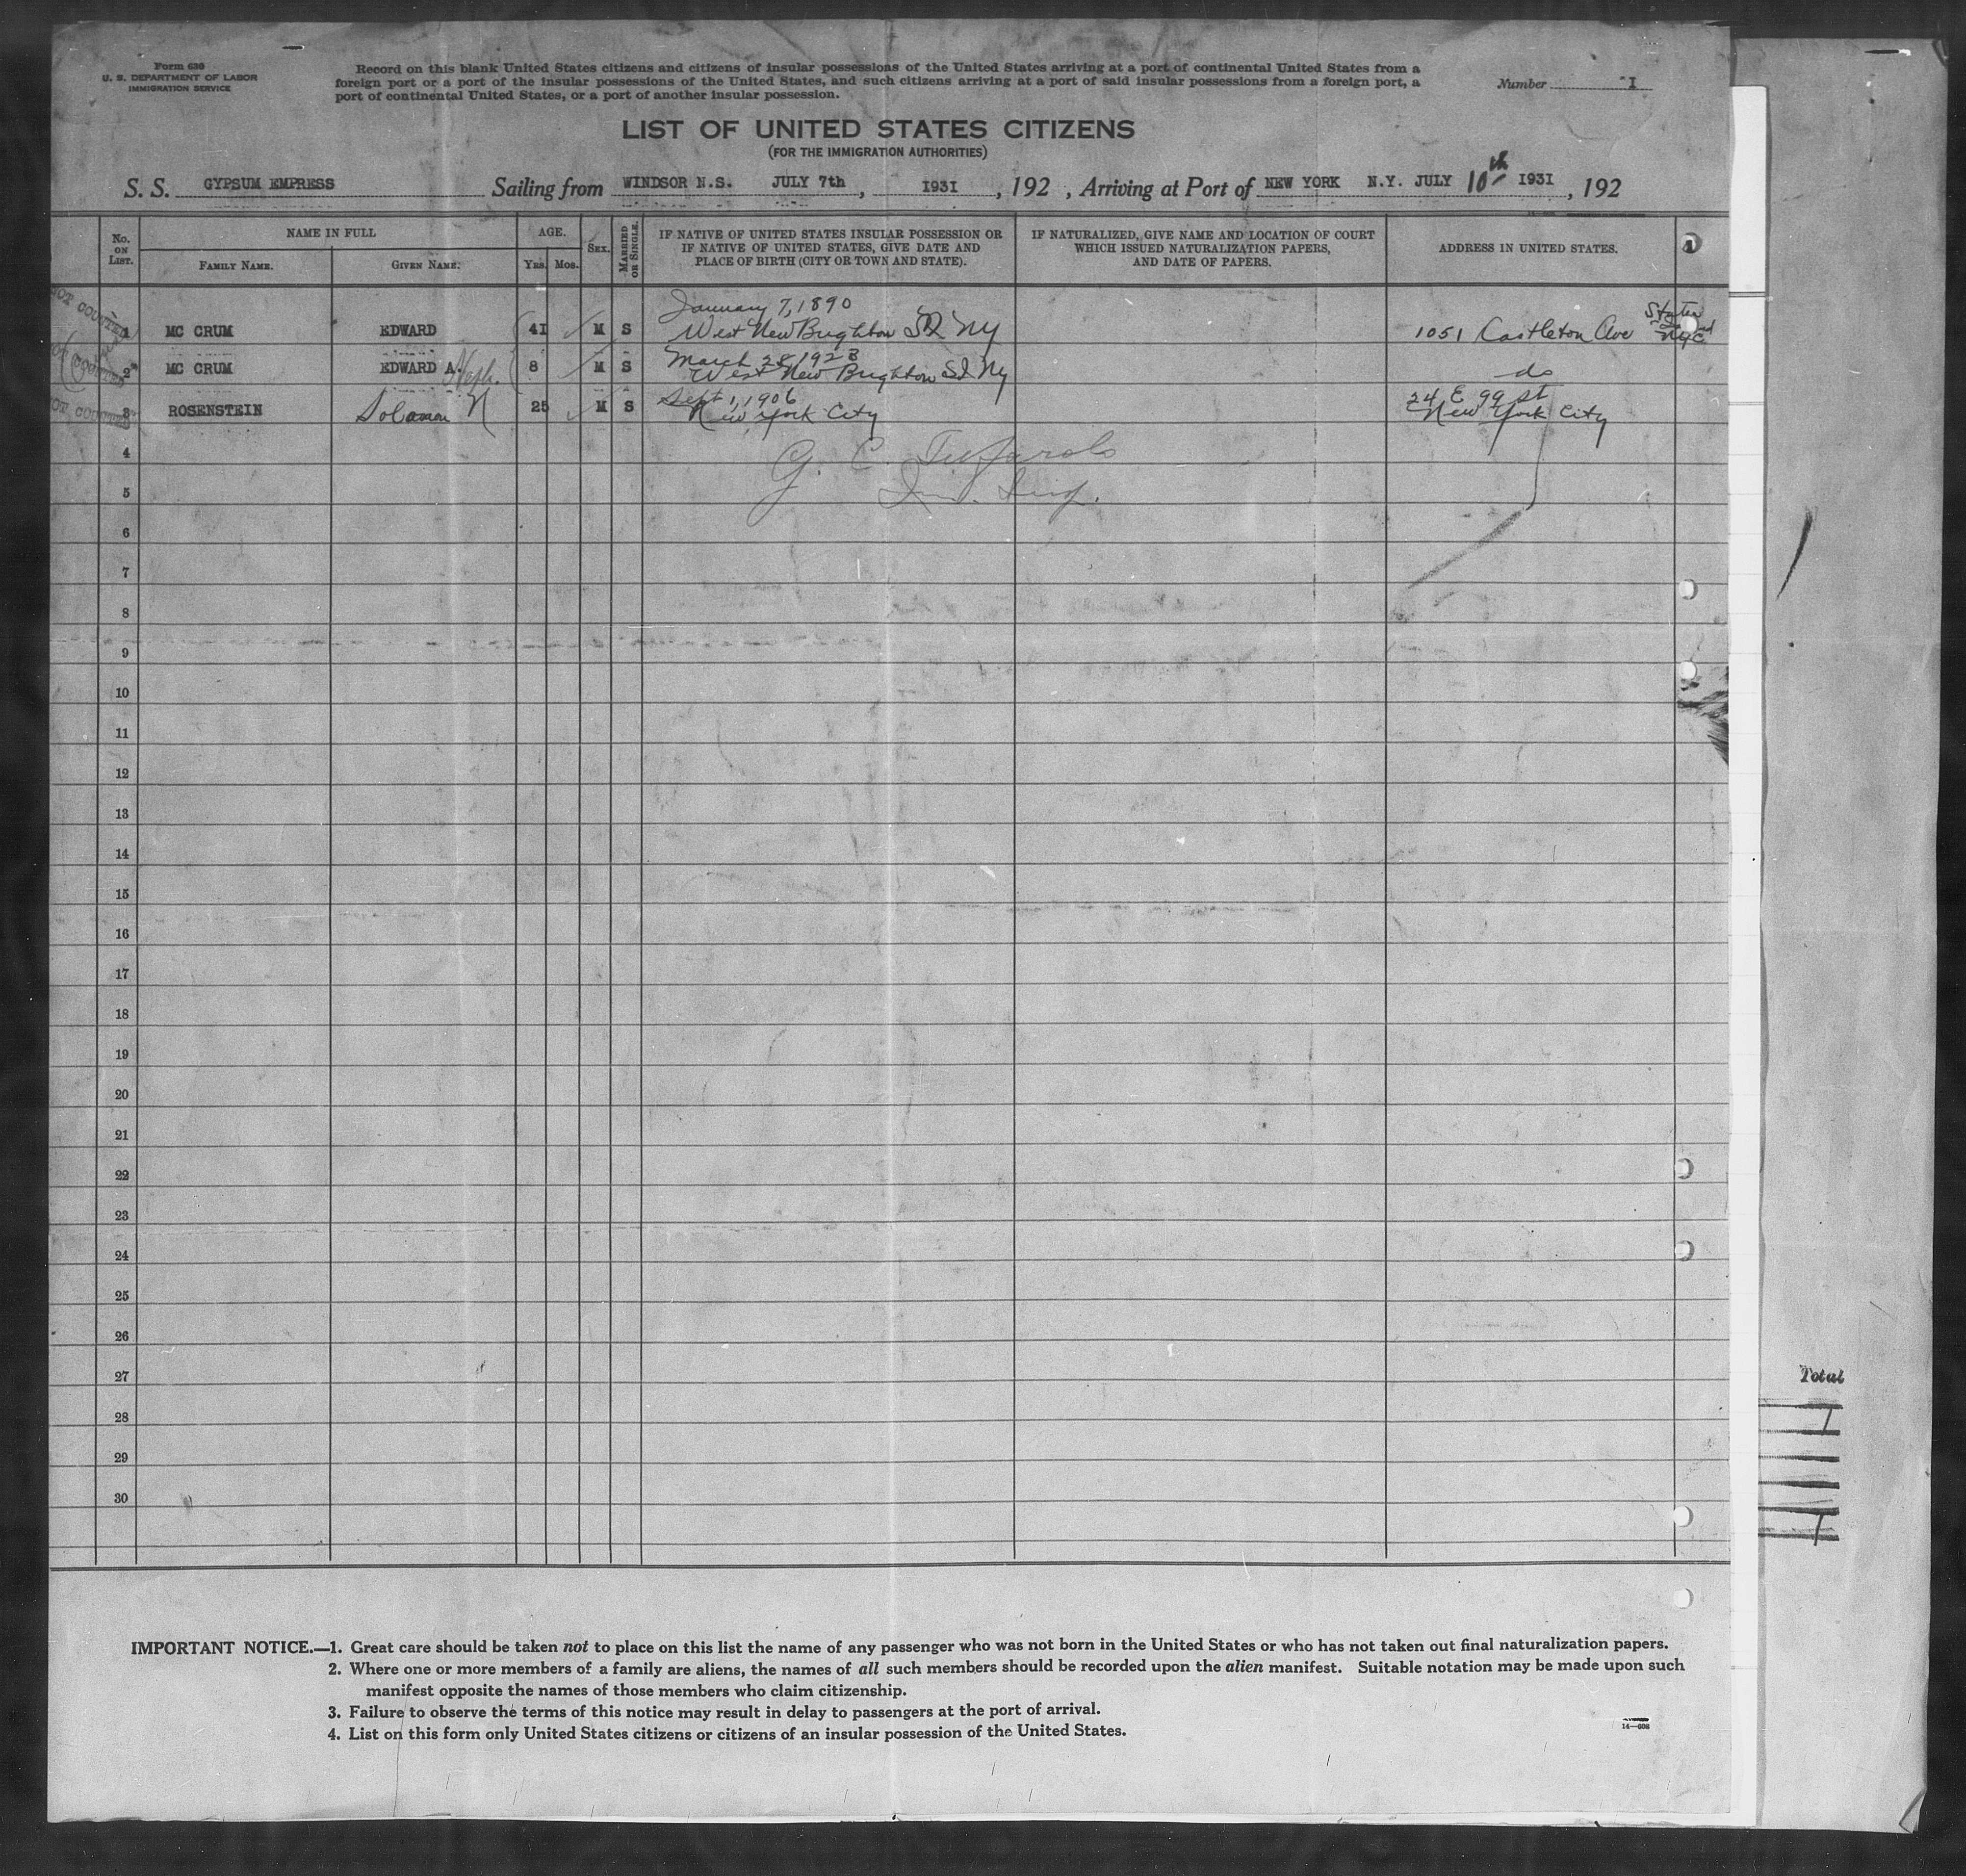 Form 630
U. S. DEPARTMENT OF LABOR
IMMIGRATION SERVICE
Record on this blank United States citizens and citizens of insular possessions of the United States arriving at a port of continental United States from a
foreign port or a port of the insular possessions of the United States, and such citizens arriving at a port of said insular possessions from a foreign port, a
port of continental United States, or a port of another insular possession.
Number I
LIST OF UNITED STATES CITIZENS
(FOR THE IMMIGRATION AUTHORITIES)
S. S. GYPSUM EMPRESS Sailing from WINDSOR N.S. JULY 7th, 1931, 192 , Arriving at Port of NEW YORK N.Y. JULY 10th 1931, 192
No. ON LIST.
NAME IN FULL
FAMILY NAME. GIVEN NAME.
AGE.
YRS. MOS.
SEX.
MARRIED OR SINGLE.
IF NATIVE OF UNITED STATES INSULAR POSSESSION OR
IF NATIVE OF UNITED STATES, GIVE DATE AND
PLACE OF BIRTH (CITY OR TOWN AND STATE).
IF NATURALIZED, GIVE NAME AND LOCATION OF COURT
WHICH ISSUED NATURALIZATION PAPERS,
AND DATE OF PAPERS.
ADDRESS IN UNITED STATES.
NOT COUNTED
January 7, 1890
1 MC CRUM EDWARD 41 M S West New Brighton SI NY 1051 Castleton Ave Staten Island NYC
March 28 1923
2 MC CRUM EDWARD A. Neph. 8 M S West New Brighton SI NY do
NOT COUNTED
Sept 1, 1906 24 E 99 St
3 ROSENSTEIN Solomon N 25 M S New York City New York City
4 G. C.
5
6
7
8
9
10
11
12
13
14
15
16
17
18
19
20
21
22
23
24
25
26
27
28
29
30
Total
IMPORTANT NOTICE.—1. Great care should be taken not to place on this list the name of any passenger who was not born in the United States or who has not taken out final naturalization papers.
2. Where one or more members of a family are aliens, the names of all such members should be recorded upon the alien manifest. Suitable notation may be made upon such
manifest opposite the names of those members who claim citizenship.
3. Failure to observe the terms of this notice may result in delay to passengers at the port of arrival.
4. List on this form only United States citizens or citizens of an insular possession of the United States.